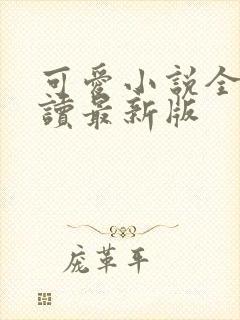 可愛小說全
讀最新版
庞革平